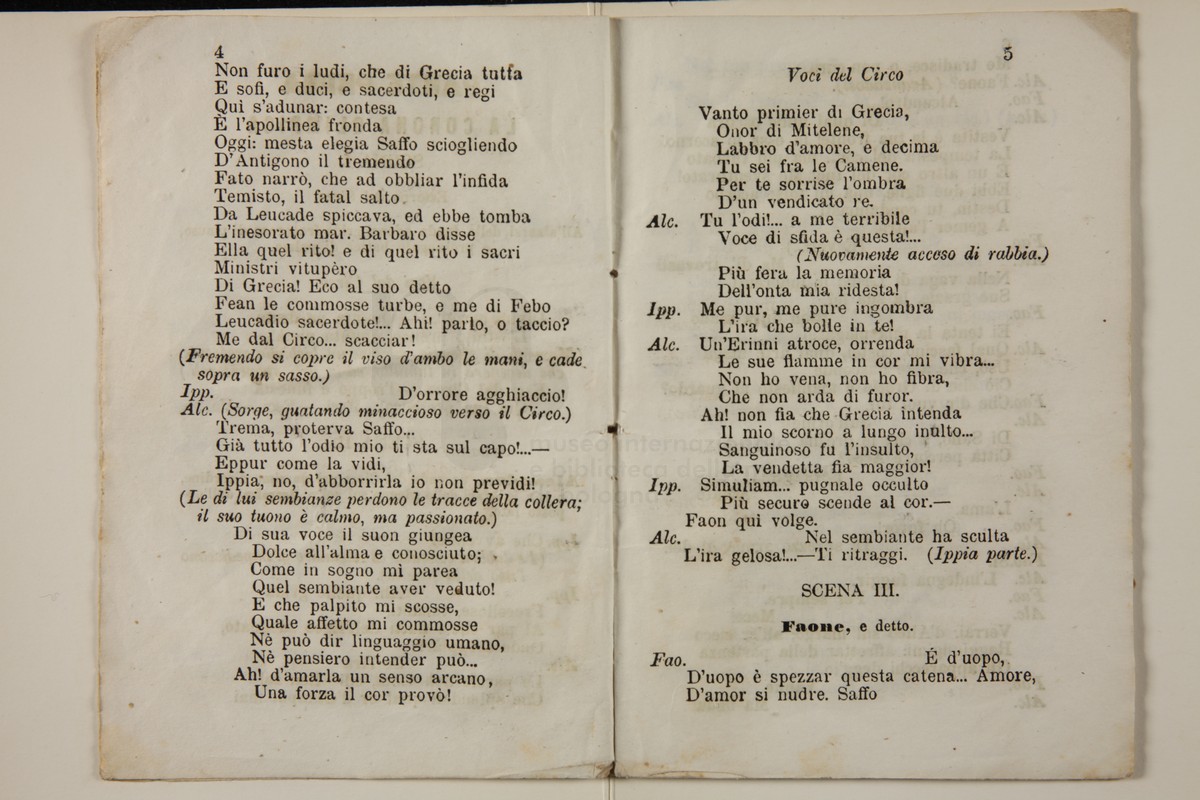 4
Non furo i ludi, che di Grecia tutta
E sofi, e duci, e sacerdoti, e regi
Qui s'adunar: contesa
E l'apollinea fronda
Oggi: mesta elegia Saffo sciogliendo
D'Antigono il tremendo
Fato narrò, che ad obbliar l'infida
Temisto, il fatal salto
Da Leucade spiccava, ed ebbe tomba
L'inesorato mar. Barbaro disse
Ella quel rito! e di quel rito i sacri
Ministri vitupèro
Di Grecia! Eco al suo detto
Fean le commosse turbe, e me di Febo
Leucadio sacerdote!... Ahi! parlo, o taccio?
Me dal Circo... scacciar!
(Fremendo si copre il viso d'ambo le mani, e cade
sopra un sasso.)
Ipp. D'orrore agghiaccio!
Alc. (Sorge, guatando minaccioso verso il Circo.)
Trema, proterva Saffo...
Già tutto l'odio mio ti sta sul capo!...—
Eppur come la vidi,
Ippia, no, d'abborrirla io non previdi!
(Le di lui sembianze perdono le tracce della collera;
il suo tuono è calmo, ma passionato.)
Di sua voce il suon giungea
Dolce all'alma e conosciuto;
Come in sogno mi parea
Quel sembiante aver veduto!
E che palpito mi scosse,
Quale affetto mi commosse
Nè può dir linguaggio umano,
Nè pensiero intender può...
Ah! d'amarla un senso arcano,
Una forza il cor provò!
5
Voci del Circo
Vanto primier di Grecia,
Onor di Mitelene,
Labbro d'amore, e decima
Tu sei fra le Camene.
Per te sorrise l'ombra
D'un vendicato re.
Alc. Tu l'odi!... a me terribile
Voce di sfida è questa!...
(Nuovamente acceso di rabbia.)
Più fera la memoria
Dell'onta mia ridesta!
Ipp. Me pur, me pure ingombra
L'ira che bolle in te!
Alc. Un'Erinni atroce, orrenda
Le sue fiamme in cor mi vibra...
Non ho vena, non ho fibra,
Che non arda di furor.
Ah! non fia che Grecia intenda
Il mio scorno a lungo inulto...
Sanguinoso fu l'insulto,
La vendetta fia maggior!
Ipp. Simuliam... pugnale occulto
Più securo scende al cor.—
Faon qui volge.
Alc. Nel sembiante ha sculta
L'ira gelosa!...—Ti ritraggi. (Ippia parte.)
SCENA III.
Faone, e detto.
Fao. È d'uopo,
D'uopo è spezzar questa catena... Amore,
D'amor si nudre. Saffo